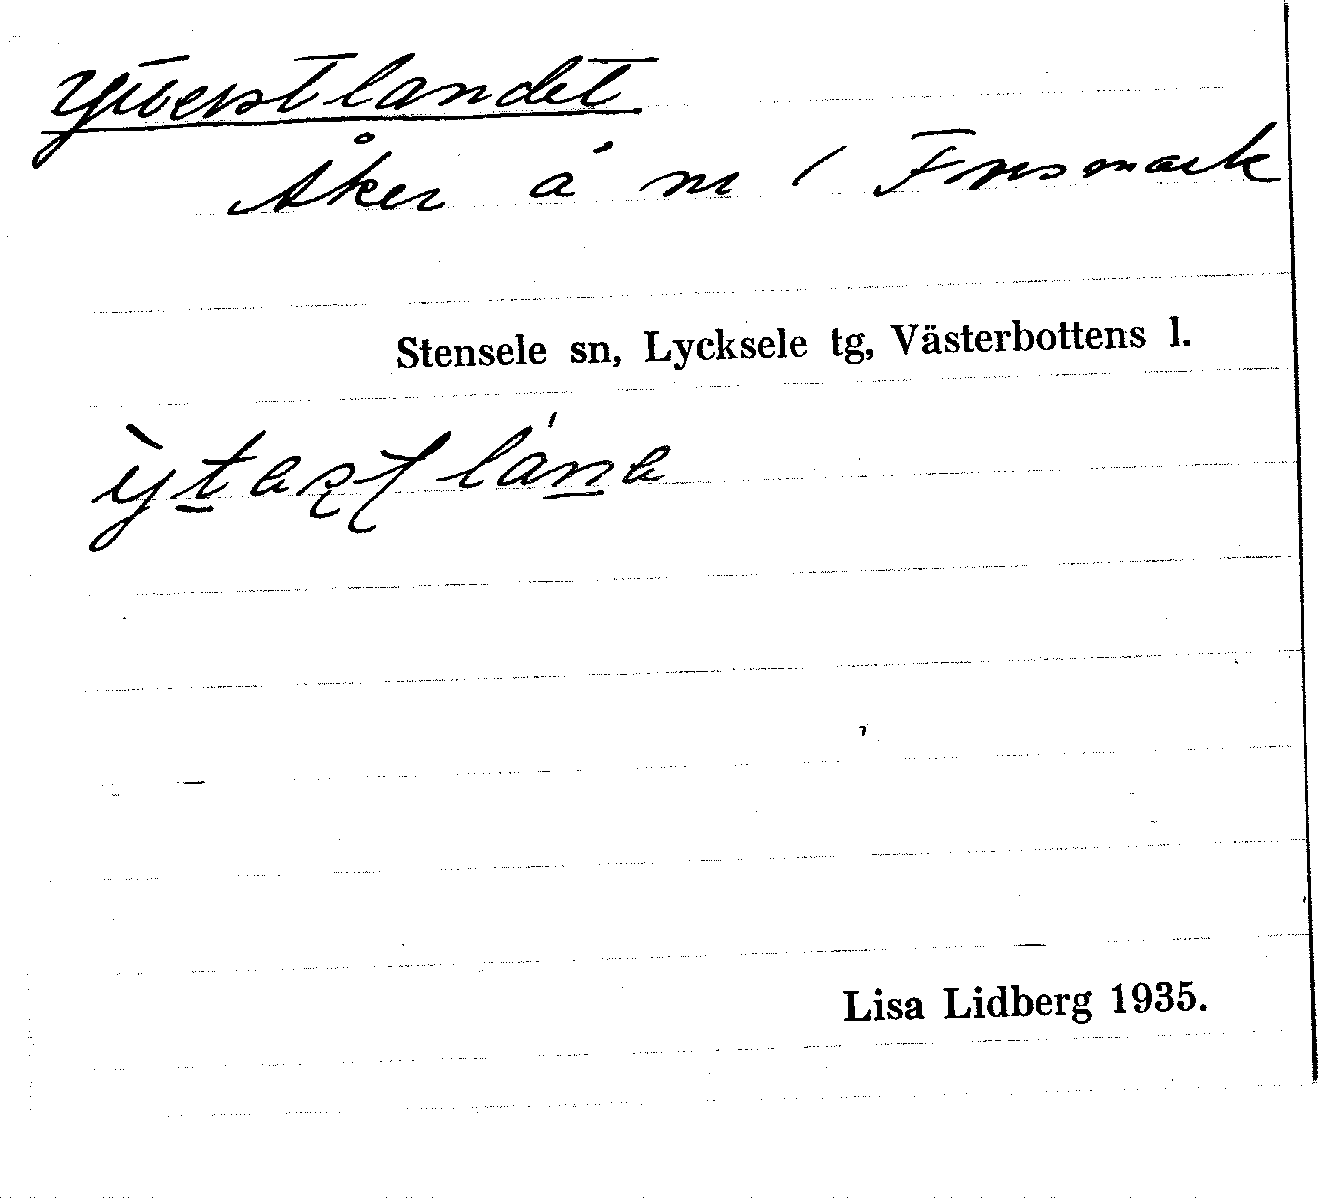 Ytterstlandet
Åker å nr 1 Frismark
Stensele sn, Lycksele tg, Västerbottens l.
Lisa Lidberg 1935.